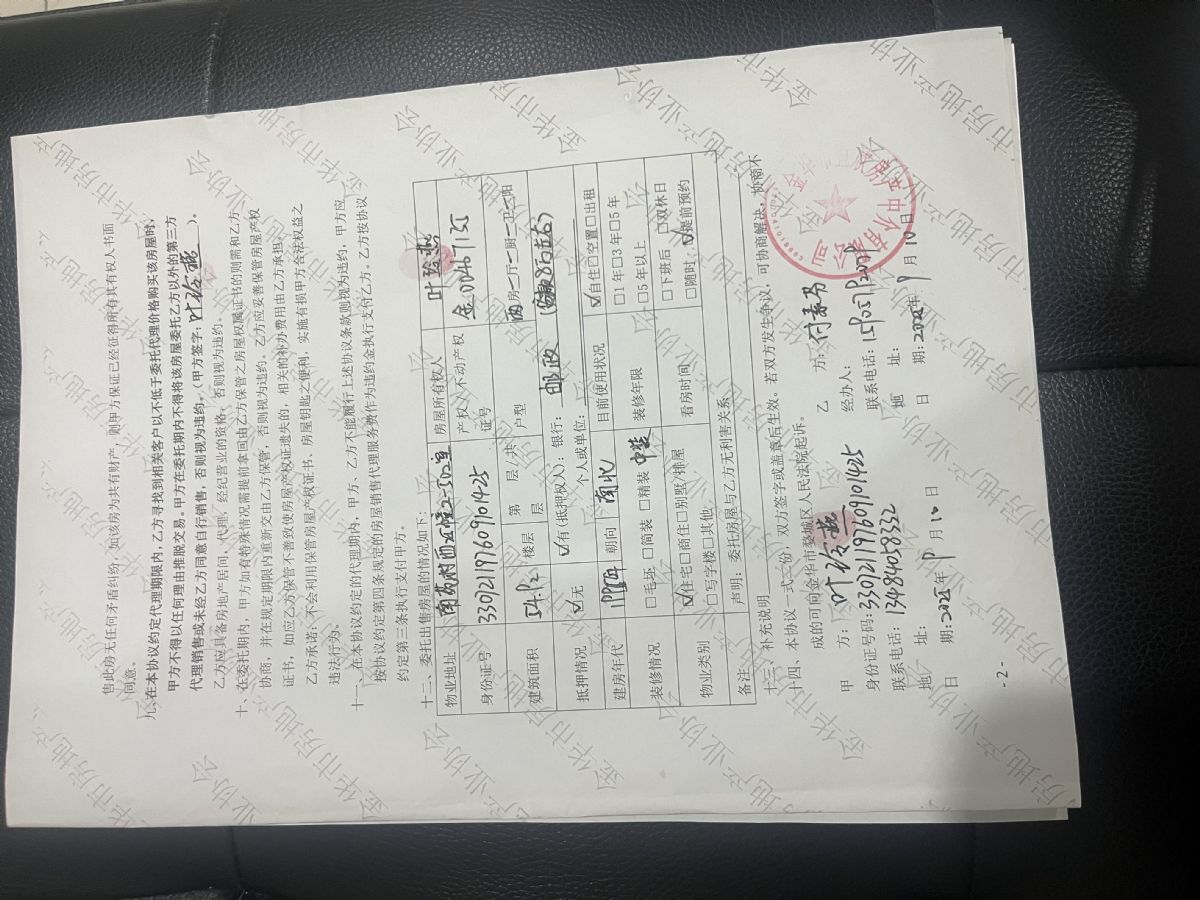 售此房无任何矛盾纠纷,如该房为共有财产,则甲方保证已经征得所有共有权人书面
同意。
九、在本协议约定代理期限内,乙方寻找到相关客户以不低于委托代理价格购买该房屋时,
甲方不得以任何理由推脱交易。甲方在委托期内不得将该房屋委托乙方以外的第三方
代理销售或未经乙方同意自行销售,否则视为违约。(甲方签字: )。
乙方应具备房地产居间,代理,经纪营业的资格,否则视为违约。
十、在委托期内,甲方如有特殊情况需提前拿回由乙方保管之房屋权属证书的则需和乙方
协商,并在规定期限内重新交由乙方保管,否则视为违约。乙方应妥善保管房屋产权
证书,如应乙方保管不善致使房屋产权证遗失的,相关的补办费用由乙方承担。
乙方承诺:不会利用保管房屋产权证书、房屋钥匙之便利,实施有损甲方合法权益之
违法行为。
十一、在本协议约定的代理期内,甲方、乙方不能履行上述协议条款则视为违约,甲方应
按协议约定第四条规定的房屋销售代理服务费作为违约金执行支付乙方。乙方按协议
约定第三条执行支付甲方。
十二、委托出售房屋的情况如下:
物业地址 2-502室 房屋所有权人 叶
身份证号 330721197609101425 产权证/不动产权证号 金00467155
建筑面积 54.82 楼层 第 层/共 层 户型 两房一厅一厨一卫一阳
抵押情况 ☑无 ☑有(抵押权人):银行: 邮政 个人或单位:
建房年代 朝向 南北 目前使用状况 ☑自住□空置□出租
装修情况 □毛坯 □简装 □精装 中装 装修年限 □1年□3年□5年 □5年以上
物业类别 ☑住宅□商住□别墅/排屋 □写字楼□其他 看房时间 □下班后 □双休日 □随时 ☑提前预约
备注 声明:委托房屋与乙方无利害关系
十三、补充说明
十四、本协议一式二份,双方签字或盖章后生效。若双方发生争议,可协商解决,协商不
成的可向金华市婺城区人民法院起诉。
甲 方: 叶 乙 方:
身份证号码:330721197609101425 经办人:
联系电话:13484058332 联系电话:
地 址: 地 址:
日 期: 9月10日 日 期: 9月10日
-2-